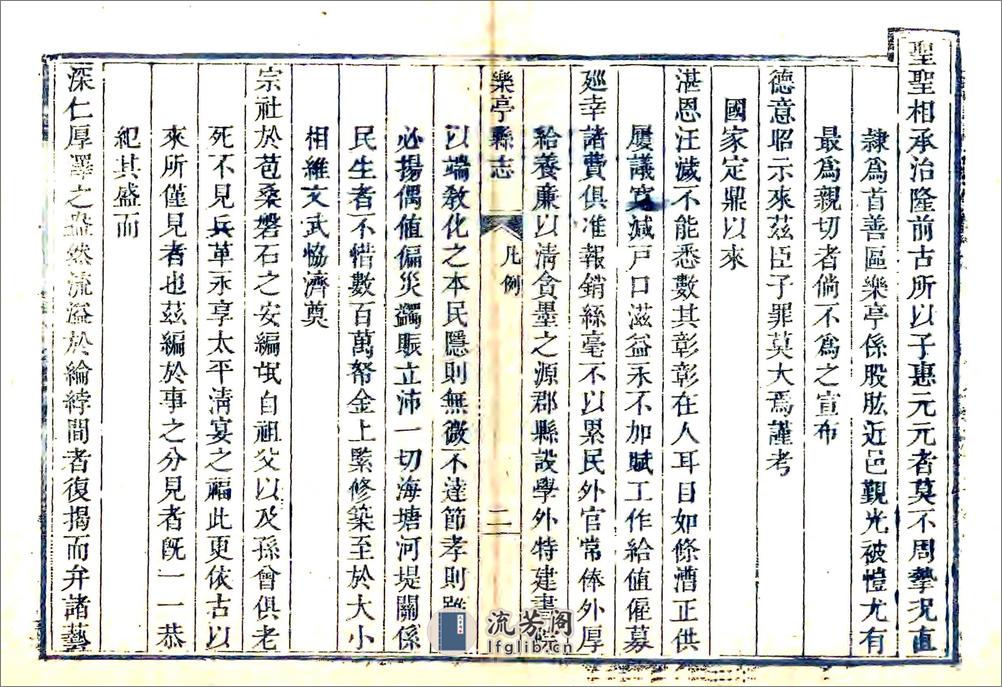 聖聖相承治隆前古所以子惠元元者莫不周摯况直
隸爲首善區樂亭係股肱近邑覲光被愷尤有
最爲親切者倘不爲之宣布
德意昭示來茲臣子罪莫大焉謹考
國家定鼎以來
湛恩汪濊不能悉數其彰彰在人耳目如條漕正供
屢議寬減戶口滋益永不加賦工作給值僱募
廵幸諸費俱准報銷絲毫不以累民外官常俸外厚
給養廉以淸貪墨之源郡縣設學外特建書院
樂亭縣志
凡例
二
以端敎化之本民隱則無微不達節孝則
必揚偶値偏災蠲賑立沛一切海塘河堤關係
民生者不惜數百萬帑金上緊修築至於大小
相維文武恊濟奠
宗社於苞桑磐石之安編氓自祖父以及孫曾俱老
死不見兵革永享太平淸宴之福此更依古以
來所僅見者也茲編於事之分見者旣一一恭
紀其盛而
深仁厚澤之盎然流溢於綸綍間者復揭而弁諸藝
流芳阁
lfglib.cn